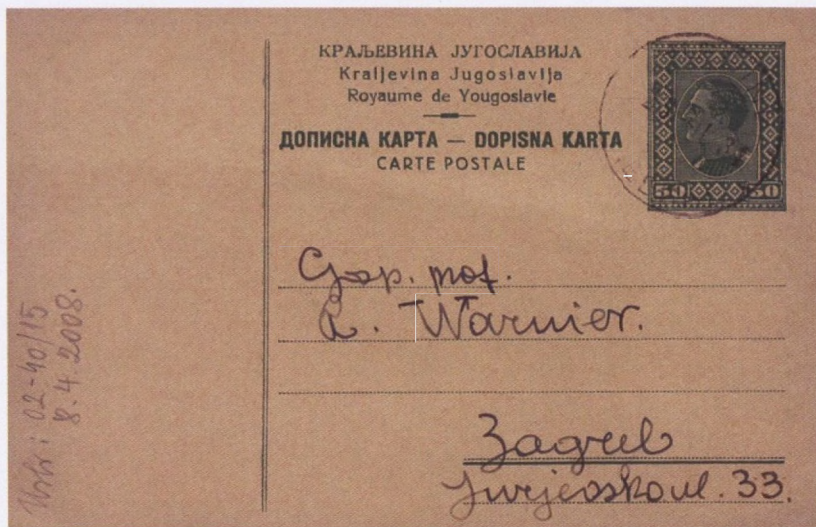 КРАЉЕВИНА ЈУГОСЛАВИЈА
Kraljevina Jugoslavija
Royaume de Yougoslavie
ДОПИСНА КАРТА — DOPISNA KARTA
CARTE POSTALE
50 50
Gosp. prof.
R. Warnier.
Zagreb
Jurjevsko ul. 33.
02-40/15
8.4.2008.